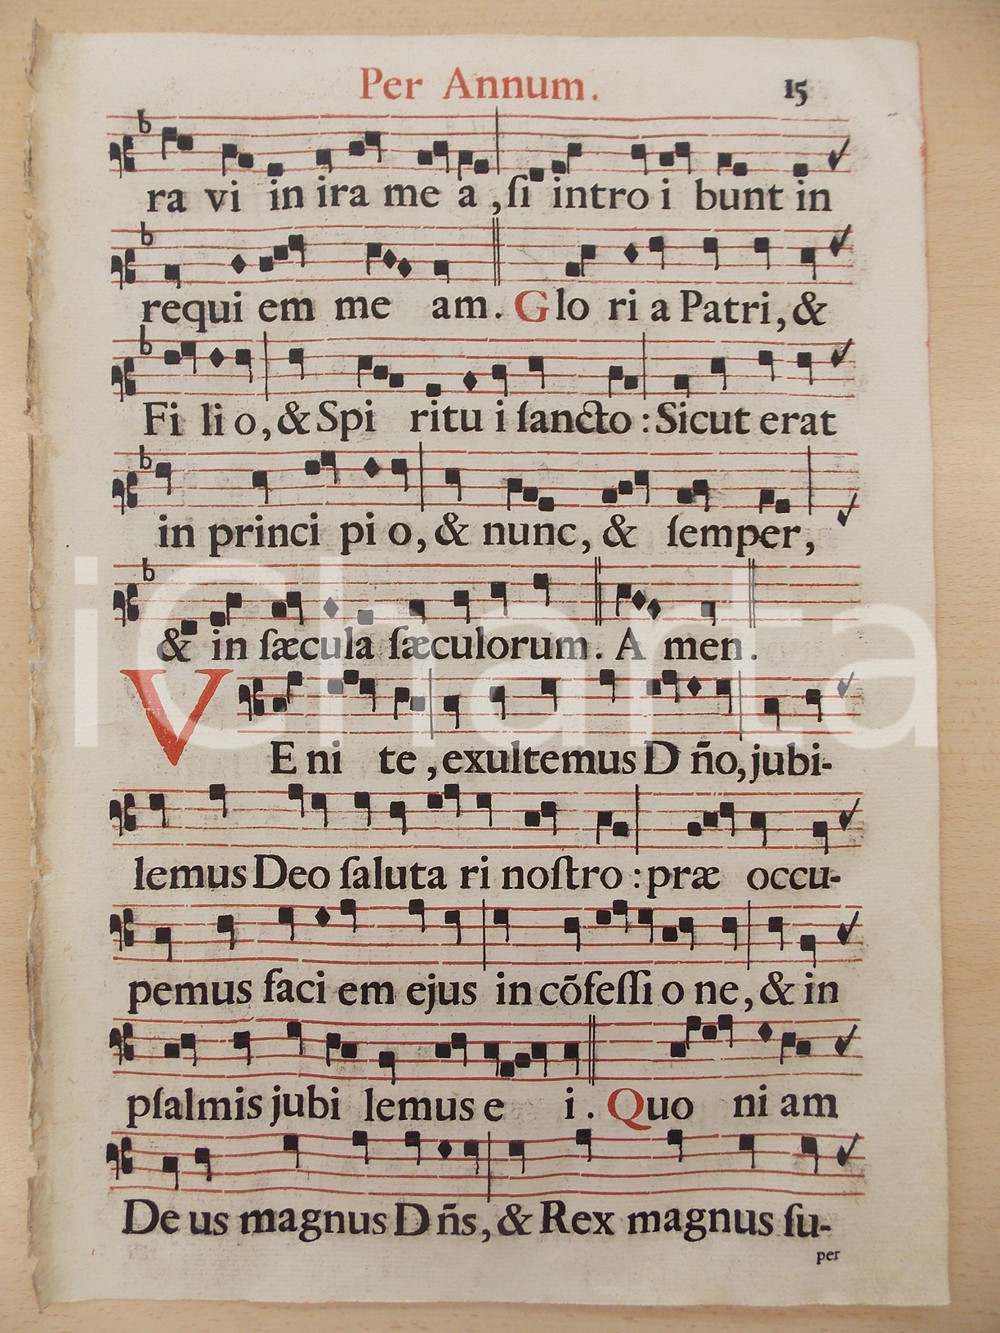 Per Annum. 15
ra vi in ira me a , ſi intro i bunt in
requi em me am. Glo ri a Patri, &
Fi li o, & Spi ritu i ſancto : Sicut erat
in princi pi o, & nunc, & ſemper,
& in ſæcula ſæculorum. A men.
VE ni te , exultemus D ño, jubi-
lemus Deo ſaluta ri noſtro : præ occu-
pemus faci em ejus in cõfeſſi o ne, & in
pſalmis jubi lemus e i. Quo ni am
De us magnus D ñs, & Rex magnus ſu-
per
iCharta